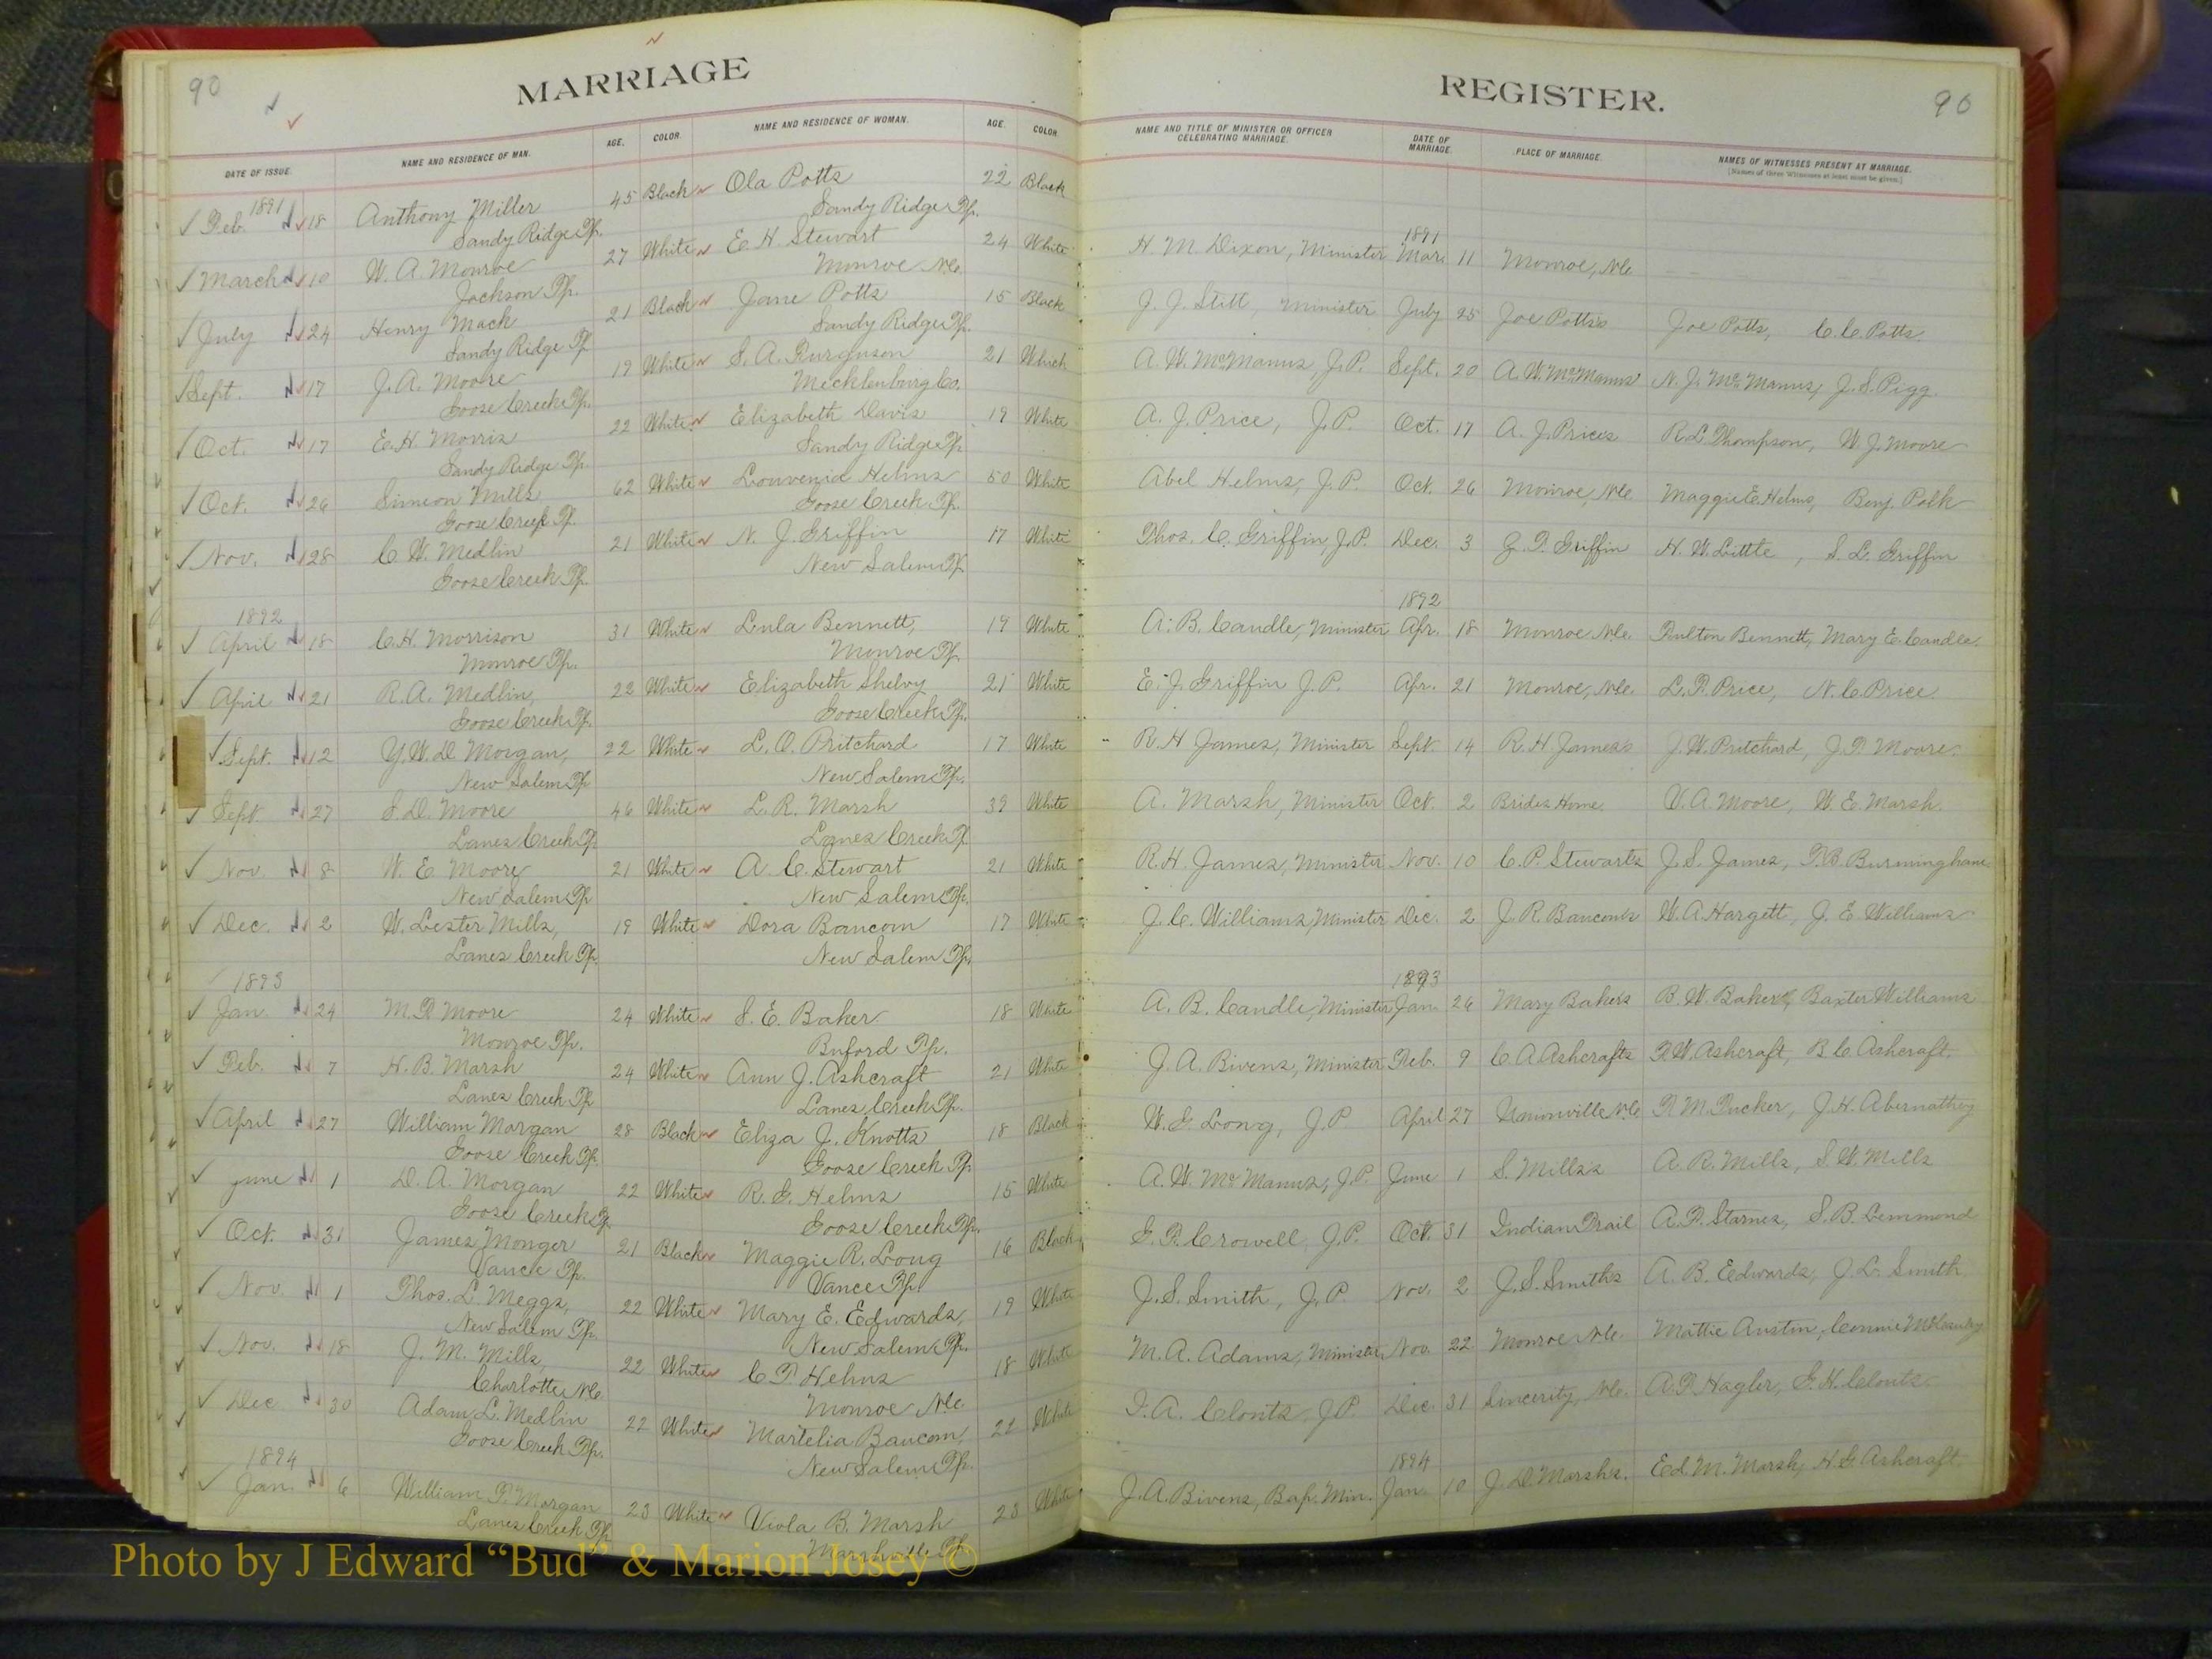 90
MARRIAGE
DATE OF ISSUE. NAME AND RESIDENCE OF MAN. AGE. COLOR. NAME AND RESIDENCE OF WOMAN. AGE. COLOR.
1891
Feb. 18 Anthony Miller 45 Black Ola Potts 22 Black
Sandy Ridge Tp. Sandy Ridge Tp.
March 10 W. A. Monroe 27 White E. H. Stewart 24 White
Jackson Tp. Monroe N.C.
July 24 Henry Mack 21 Black Jane Potts 15 Black
Sandy Ridge Tp. Sandy Ridge Tp.
Sept. 17 J. A. Moore 19 White S. A. Furguson 21 Which
Goose Creek Tp. Mecklenburg Co.
Oct. 17 E. H. Morris 22 White Elizabeth Davis 19 White
Sandy Ridge Tp. Sandy Ridge Tp.
Oct. 26 Simeon Mills 62 White Louvenia Helms 50 White
Goose Creek Tp. Goose Creek Tp.
Nov. 28 C. W. Medlin 21 White N. J. Griffin 17 White
Goose Creek Tp. New Salem Tp.
1892
April 18 C. H. Morrison 31 White Lula Bennett, 19 White
Monroe Tp. Monroe Tp.
April 21 R. A. Medlin, 22 White Elizabeth Shelvy 21 White
Goose Creek Tp. Goose Creek Tp.
Sept. 12 Y. W. D. Morgan, 22 White L. O. Pritchard 17 White
New Salem Tp. New Salem Tp.
Sept. 27 S. D. Moore 46 White L. R. Marsh 39 White
Lanes Creek Tp. Lanes Creek Tp.
Nov. 8 W. E. Moore 21 White A. C. Stewart 21 White
New Salem Tp. New Salem Tp.
Dec. 2 W. Lester Mills, 19 White Dora Baucom 17 White
Lanes Creek Tp. New Salem Tp.
1893
Jan. 24 M. F. Moore 24 White S. E. Baker 18 White
Monroe Tp. Buford Tp.
Feb. 7 H. B. Marsh 24 White Ann J. Ashcraft 21 White
Lanes Creek Tp. Lanes Creek Tp.
April 27 William Morgan 28 Black Eliza J. Knotts 18 Black
Goose Creek Tp. Goose Creek Tp.
June 1 D. A. Morgan 22 White R. G. Helms 15 White
Goose Creek Tp. Goose Creek Tp.
Oct. 31 James Monger 21 Black Maggie R. Long 16 Black
Vance Tp. Vance Tp.
Nov. 1 Thos. L. Meggs, 22 White Mary E. Edwards, 19 White
New Salem Tp. New Salem Tp.
Nov. 18 J. M. Mills, 22 White C. T. Helms 18 White
Charlotte N.C. Monroe N.C.
Dec 30 Adam L. Medlin 22 White Martelia Baucom, 22 White
Goose Creek Tp. New Salem Tp.
1894
Jan. 6 William T. Morgan 23 White Viola B. Marsh 23 White
Lanes Creek Tp. Marshville Tp.
REGISTER.
90
NAME AND TITLE OF MINISTER OR OFFICER CELEBRATING MARRIAGE. DATE OF MARRIAGE. PLACE OF MARRIAGE. NAMES OF WITNESSES PRESENT AT MARRIAGE.
[Names of three Witnesses at least must be given.]
1891
H. M. Dixon, Minister Mar. 11 Monroe, N.C.
J. J. Stitt, Minister July 25 Joe Potts's Joe Potts, C. C. Potts.
A. W. McManus, J.P. Sept. 20 A. W. McManus' N. J. McManus, J. S. Pigg.
A. J. Price, J.P. Oct. 17 A. J. Prices R. L. Thompson, W. J. Moore
Abel Helms, J.P. Oct. 26 Monroe, N.C. Maggie E. Helms, Benj. Polk
Thos. C. Griffin, J.P. Dec. 3 Z. T. Griffin H. W. Little, S. L. Griffin
1892
A. B. Caudle, Minister Apr. 18 Monroe N.C. Fulton Bennett, Mary E. Caudle.
E. J. Griffin J.P. Apr. 21 Monroe, N.C. L. F. Price, N. C. Price
R. H. James, Minister Sept. 14 R. H. James's J. W. Pritchard, J. P. Moore.
A. Marsh, Minister Oct. 2 Brides Home. V. A. Moore, W. E. Marsh.
R. H. James, Minister Nov. 10 C. P. Stewarts J. S. James, T. B. Burmingham
J. C. Williams, Minister Dec. 2 J. R. Baucom's W. A. Hargett, J. E. Williams
1893
A. B. Caudle, Minister Jan. 26 Mary Bakers B. W. Baker, Baxter Williams
J. A. Bivens, Minister Feb. 9 C. A. Ashcrafts F. W. Ashcraft, B. C. Ashcraft.
W. G. Long, J.P. April 27 Unionville N.C. F. M. Rucker, J. H. Abernathey
A. W. McManus, J.P. June 1 S. Mills's A. R. Mills, S. W. Mills
G. T. Crowell, J.P. Oct. 31 Indian Trail A. F. Starnes, S. B. Lemmond
J. S. Smith, J.P. Nov. 2 J. S. Smiths A. B. Edwards, J. L. Smith
M. A. Adams, Minister, Nov. 22 Monroe N.C. Mattie Austin, Connie McCauley
I. A. Clontz, J.P. Dec. 31 Sincerity, N.C. A. F. Hagler, G. H. Clontz.
1894
J. A. Bivens, Bap. Min. Jan. 10 J. D. Marsh's. Ed. M. Marsh, H. G. Ashcraft.
Photo by J Edward “Bud” & Marion Josey ©